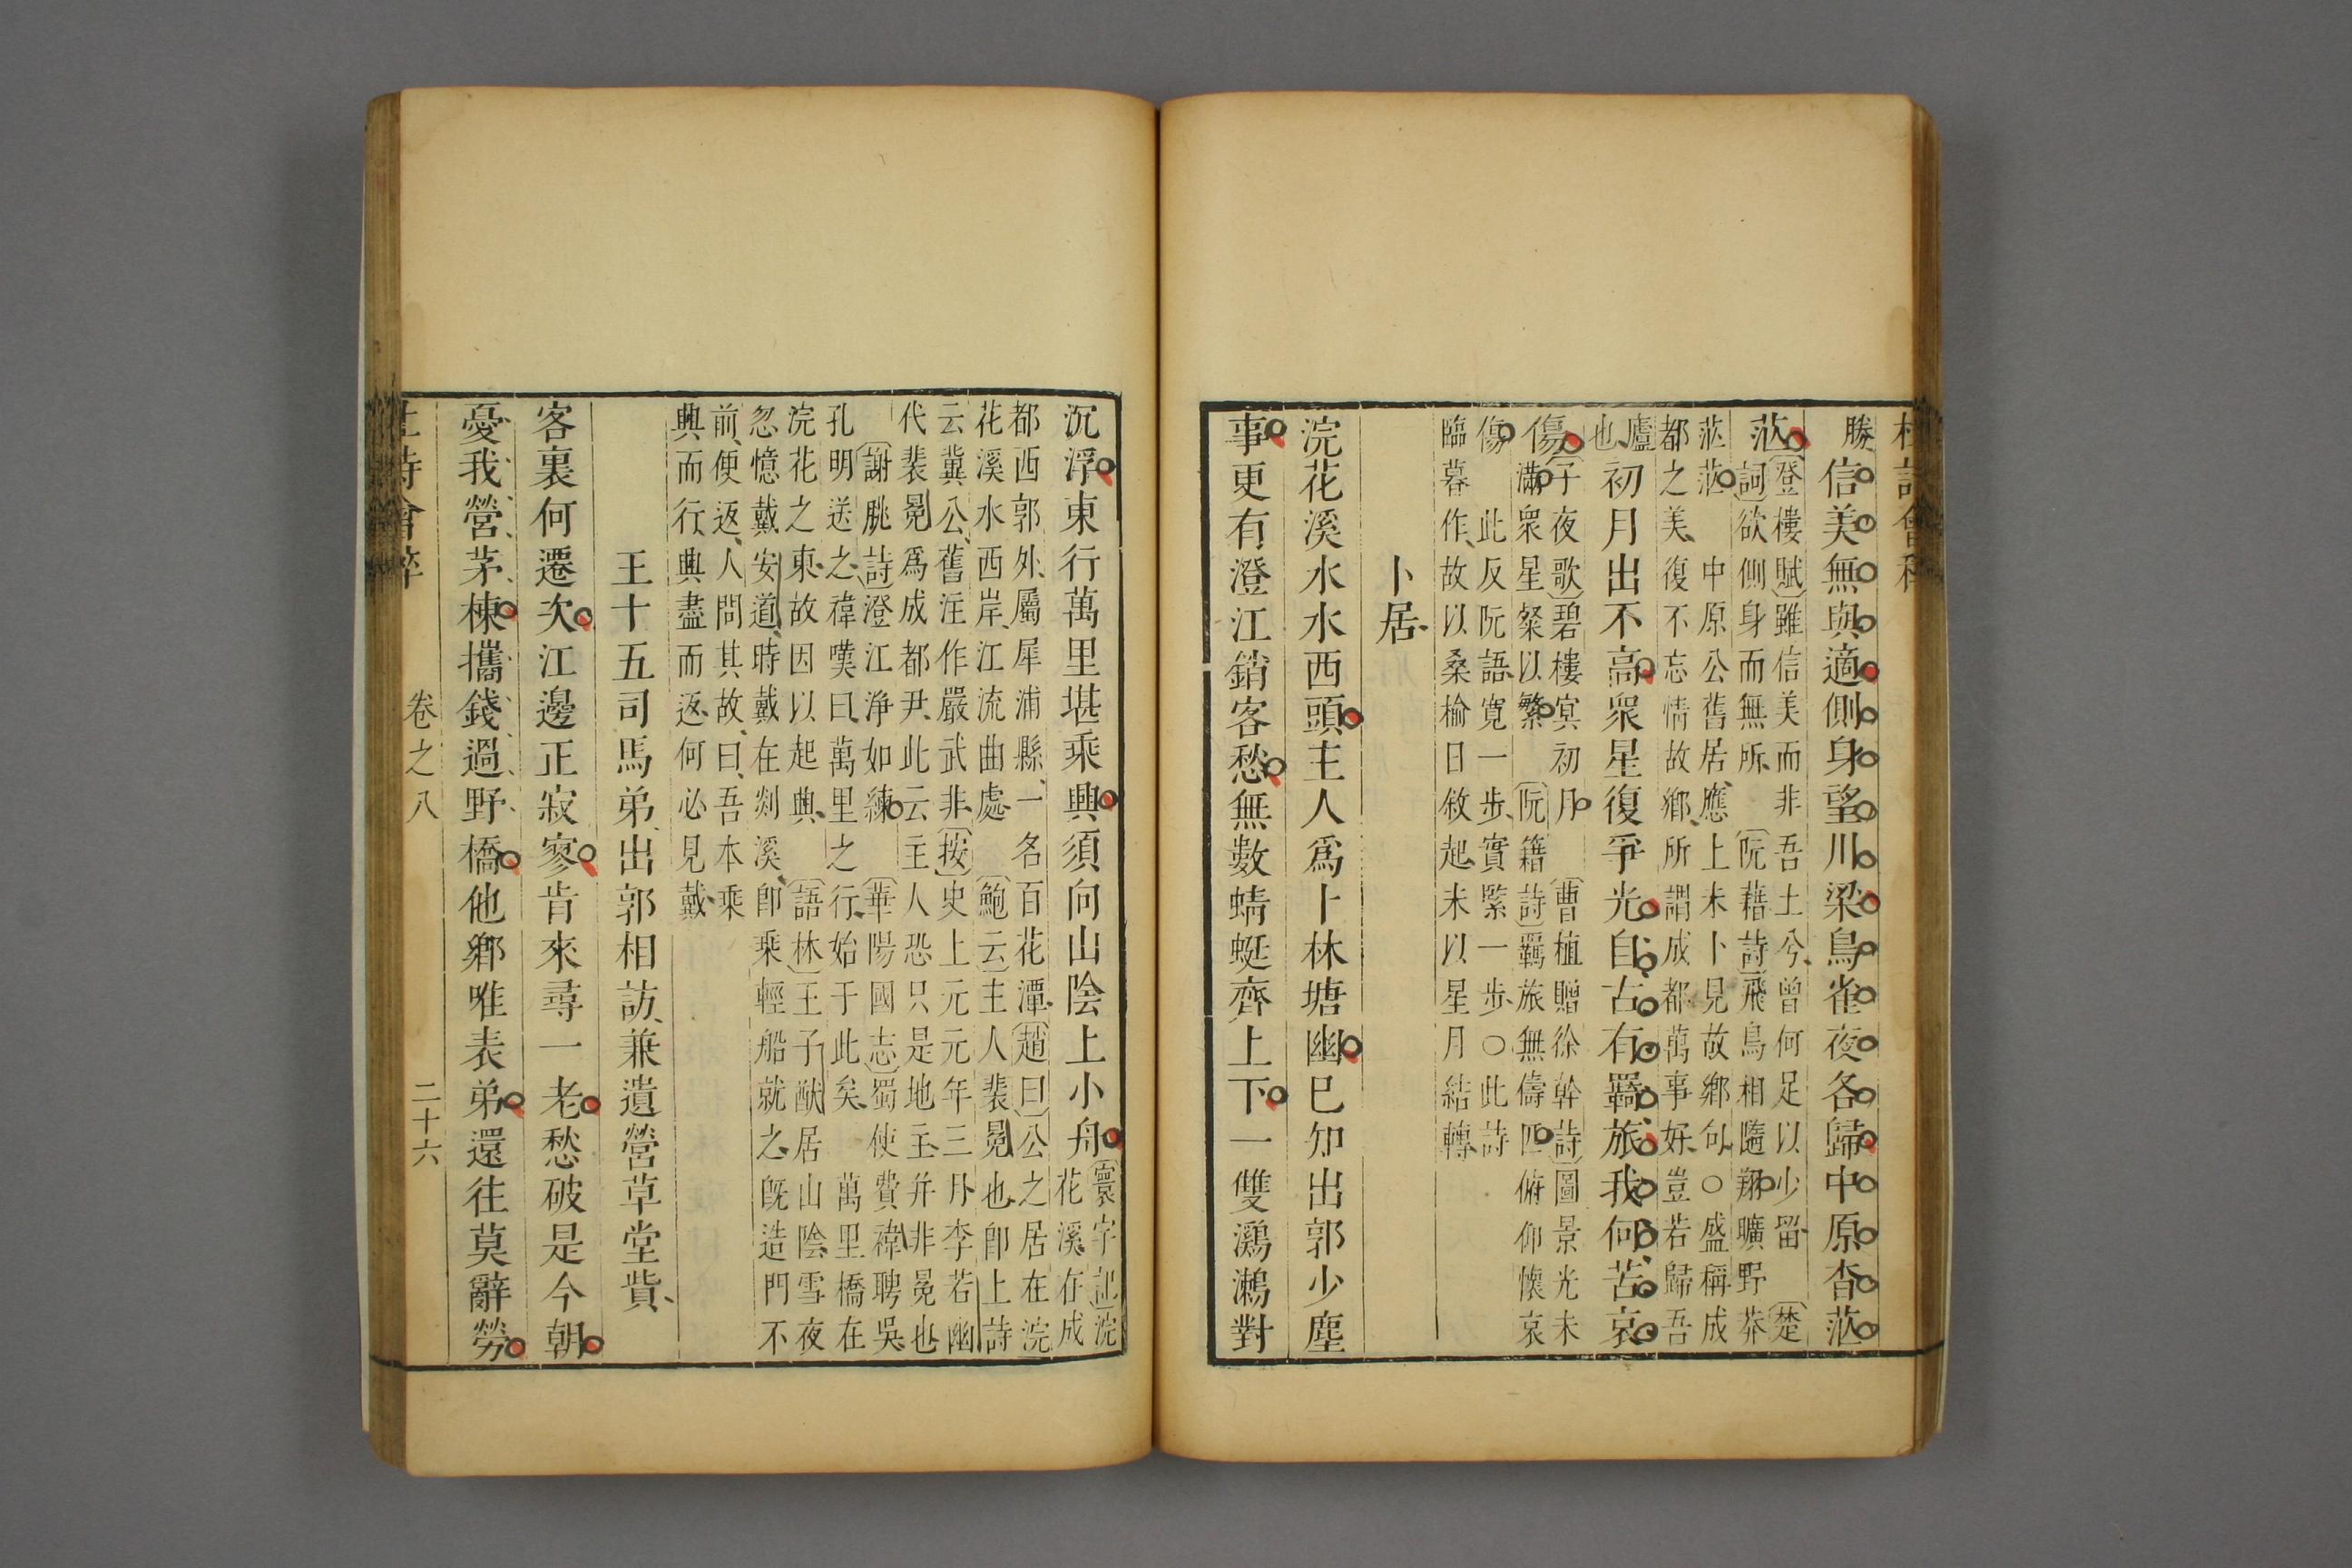 杜詩會稡
勝信美無與適側身望川梁鳥雀夜各歸中原杳茫
茫
〔登樓賦〕雖信美而非吾土兮曾何足以少留〔楚
詞〕欲側身而無所〔阮藉詩〕飛鳥相隨翔曠野莽
茫茫 中原公舊居應上未卜見故鄉句○盛稱成
都之美復不忘情故鄉所謂成都萬事好豈若歸吾
廬
也
初月出不高衆星復爭光自古有羇旅我何苦哀
傷
〔子夜歌〕碧樓冥初月 〔曹植贈徐幹詩〕圖景光未
滿衆星粲以繁 〔阮籍詩〕羇旅無儔匹俯仰懷哀
傷 此反阮語寬一步實緊一步○此詩
臨暮作故以桑榆日敘起末以星月結轉
卜居
浣花溪水水西頭主人爲卜林塘幽已知出郭少塵
事更有澄江銷客愁無數蜻蜓齊上下一雙鸂鶒對
沉浮東行萬里堪乘興須向山陰上小舟
〔寰宇記〕浣
花溪在成
都西郭外屬犀浦縣一名百花潭〔趙曰〕公之居在浣
花溪水西岸江流曲處〔鮑云〕主人裴冕也卽上詩
云冀公舊注作嚴武非〔按〕史上元元年三月李若幽
代裴冕爲成都尹此云主人恐只是地主并非冕也
〔謝朓詩〕澄江淨如練〔華陽國志〕蜀使費禕聘吳
孔明送之禕嘆曰萬里之行始于此矣 萬里橋在
浣花之東故因以起興〔語林〕王子猷居山陰雪夜
忽憶戴安道時戴在剡溪卽乘輕船就之旣造門不
前便返人問其故曰吾本乘
興而行興盡而返何必見戴
王十五司馬弟出郭相訪兼遺營草堂貲
客裏何遷次江邊正寂寥肯來尋一老愁破是今朝
憂我營茅棟攜錢過野橋他鄉唯表弟還往莫辭勞
杜詩會稡 卷之八 二十六